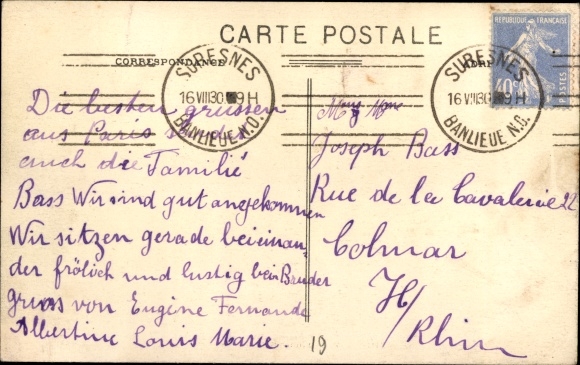 CARTE POSTALE
CORRESPONDANCE
SURESNES
16 VIII 30 9H
BANLIEUE N.O.
SURESNES
16 VIII 30 9H
BANLIEUE N.O.
REPUBLIQUE FRANÇAISE
40c
POSTES
Die besten grüssen
aus Paris
auch die Familié
Bass Wir sind gut angekommen
Wir sitzen gerade beieinan-
der frölich und lustig bein Bruder
gruss von Eugène Fernande
Albertine Louis Marie.
Joseph Bass
Rue de la Cavalerie 22
Colmar
H/
Rhin
19